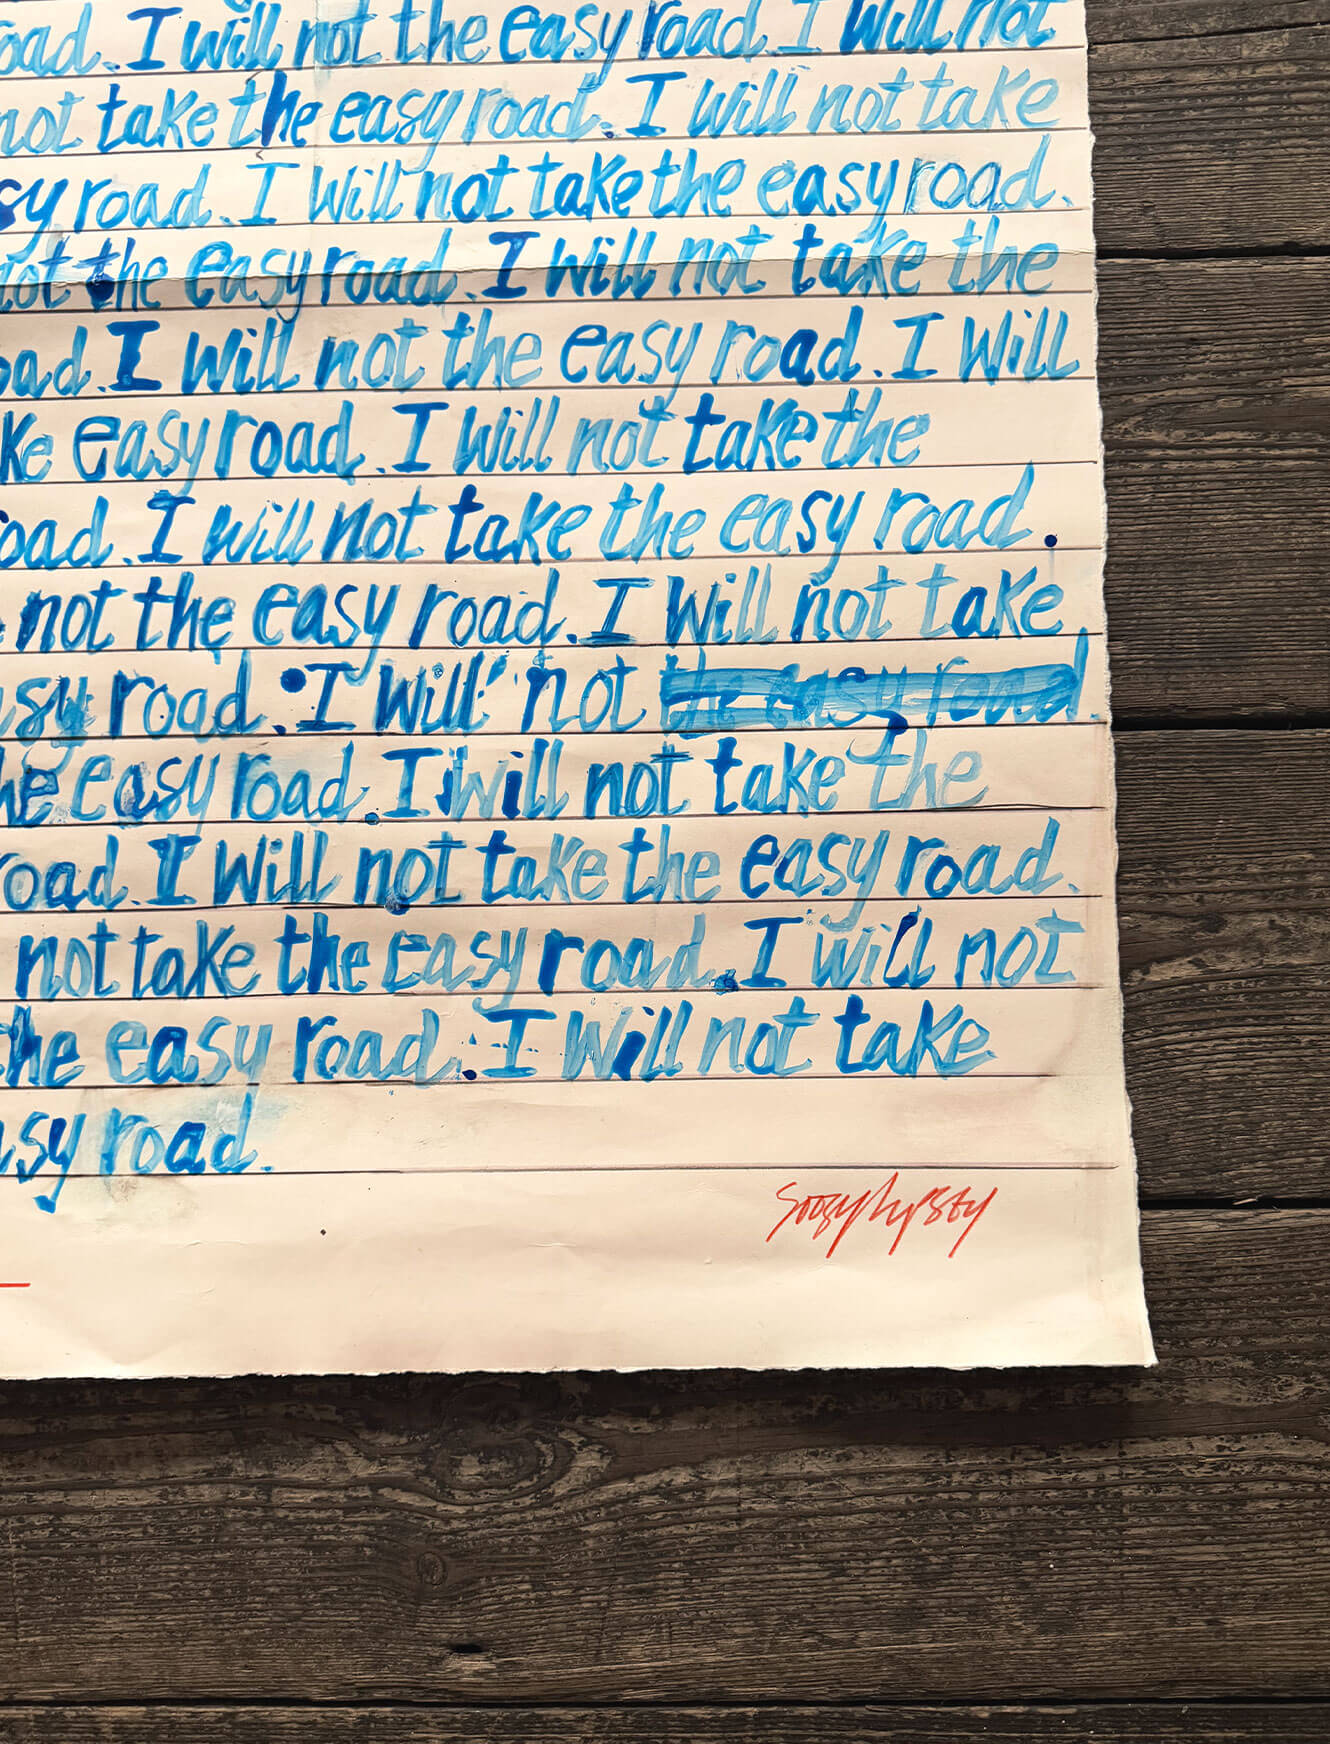 oad. I will not the easy road. I will not
not take the easy road. I will not take
sy road. I will not take the easy road.
not the easy road. I will not take the
oad. I will not the easy road. I will
ke easy road. I will not take the
road. I will not take the easy road.
not the easy road. I will not take
asy road. I will not the easy road
he easy road. I will not take the
road. I will not take the easy road.
not take the easy road. I will not
the easy road. I will not take
asy road.
Soozy Lipsey